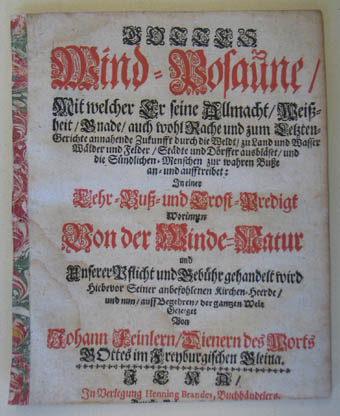 GOTTES
Wind-Posaune/
Mit welcher Er seine Allmacht/ Weiß-
heit/ Gnade/ auch wohl Rache und zum Letzten-
Gerichte annahende Zukunfft durch die Weldt/ zu Land und Wasser
Wälder und Felder/ Städte und Dörffer ausbläset/ und
die Sündlichen-Menschen zur wahren Buße
an- und aufftreibet:
In einer
Lehr-Buß- und Trost-Predigt
Worinnen
Von der Winde-Natur
und
Unserer Pflicht und Gebühr gehandelt wird
Hiebevor Seiner anbefohlenen Kirchen-Heerde/
und nun/ auff Begehren/ der gantzen Welt
Gezeiget
Von
Johann Feinlern/ Dienern des Worts
GOttes im Freyburgischen Gleina.
JENA/
In Verlegung Henning Brandes, Buchhändelers.